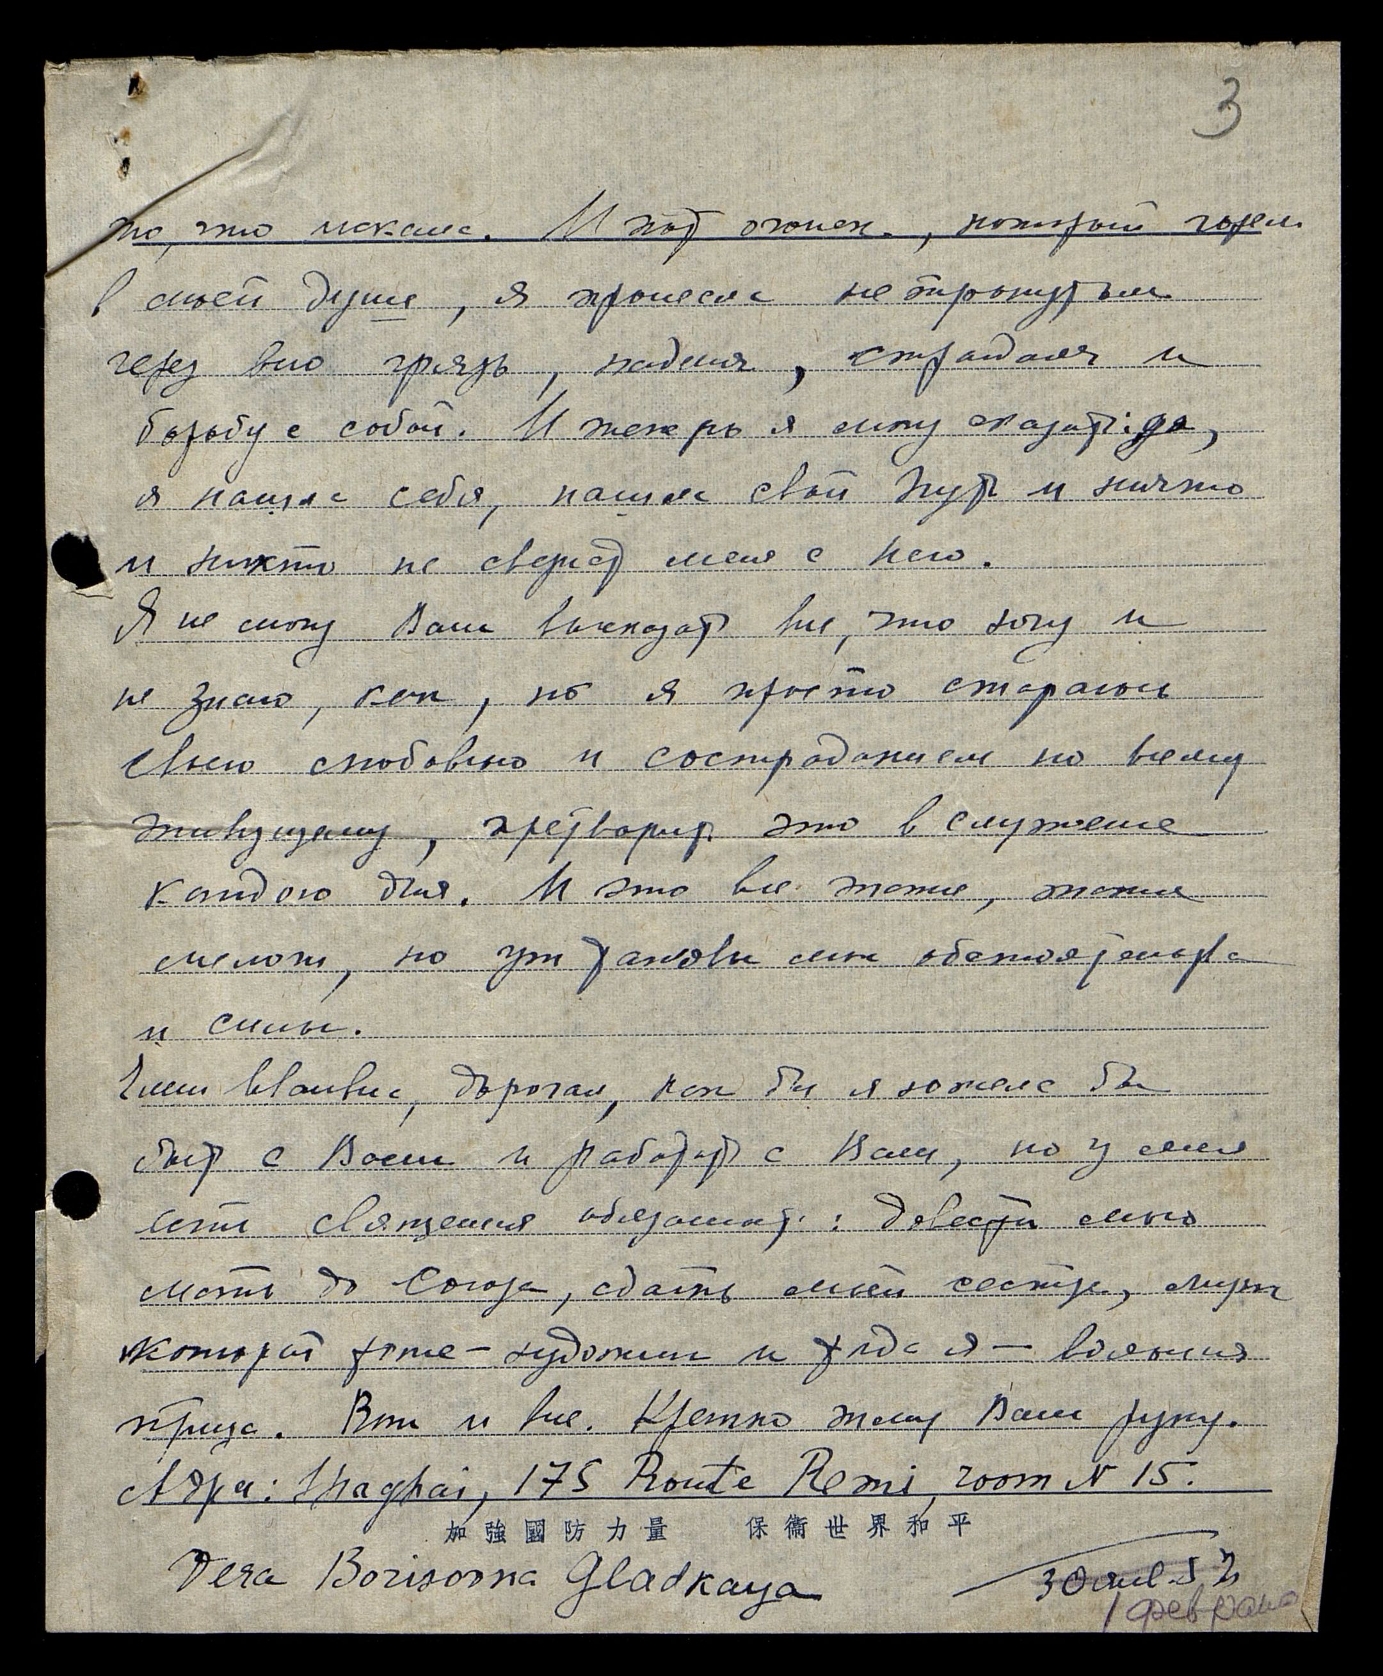 3
то, что искала. И тот огонек, который горел
в моей душе, я пронесла нетронутым
через всю грязь, падения, страдания и
борьбу с собой. И теперь я могу сказать: да,
я нашла себя, нашла свой путь и ничто
и никто не свернет меня с него.
Я не могу Вам высказать все, что хочу и
не знаю, как, но я просто стараюсь
свою любовью и состраданием ко всему
живущему, претворить это в служение
каждого дня. И это все такие, такие
мелочи, но уж таковы мои обстоятельства
и силы.
дорогая, как бы я хотела бы
быть с Вами и работать с Вами, но у меня
есть священная обязанность: довести мою
мать до Союза, сдать моей сестре, муж
которой тоже – художник и тогда я – вольная
птица. Вот и все. Крепко жму Вашу руку.
Адрес: Shaghai, 175 Route Remi, room N 15.
加強國防力量 保衞世界和平
Vera Borisovna Gladkaya 30 янв. 52
1 февраля